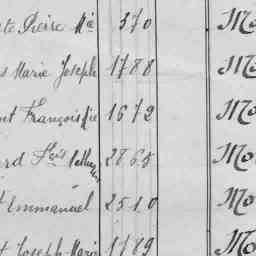 Pierre Mie 370 Mo
Marie Joseph 1788 Mo
François fie 1672 Mo
ard 2865 Mo
Emmanuel 2510 Mo
Joseph Marie 1789 Mo